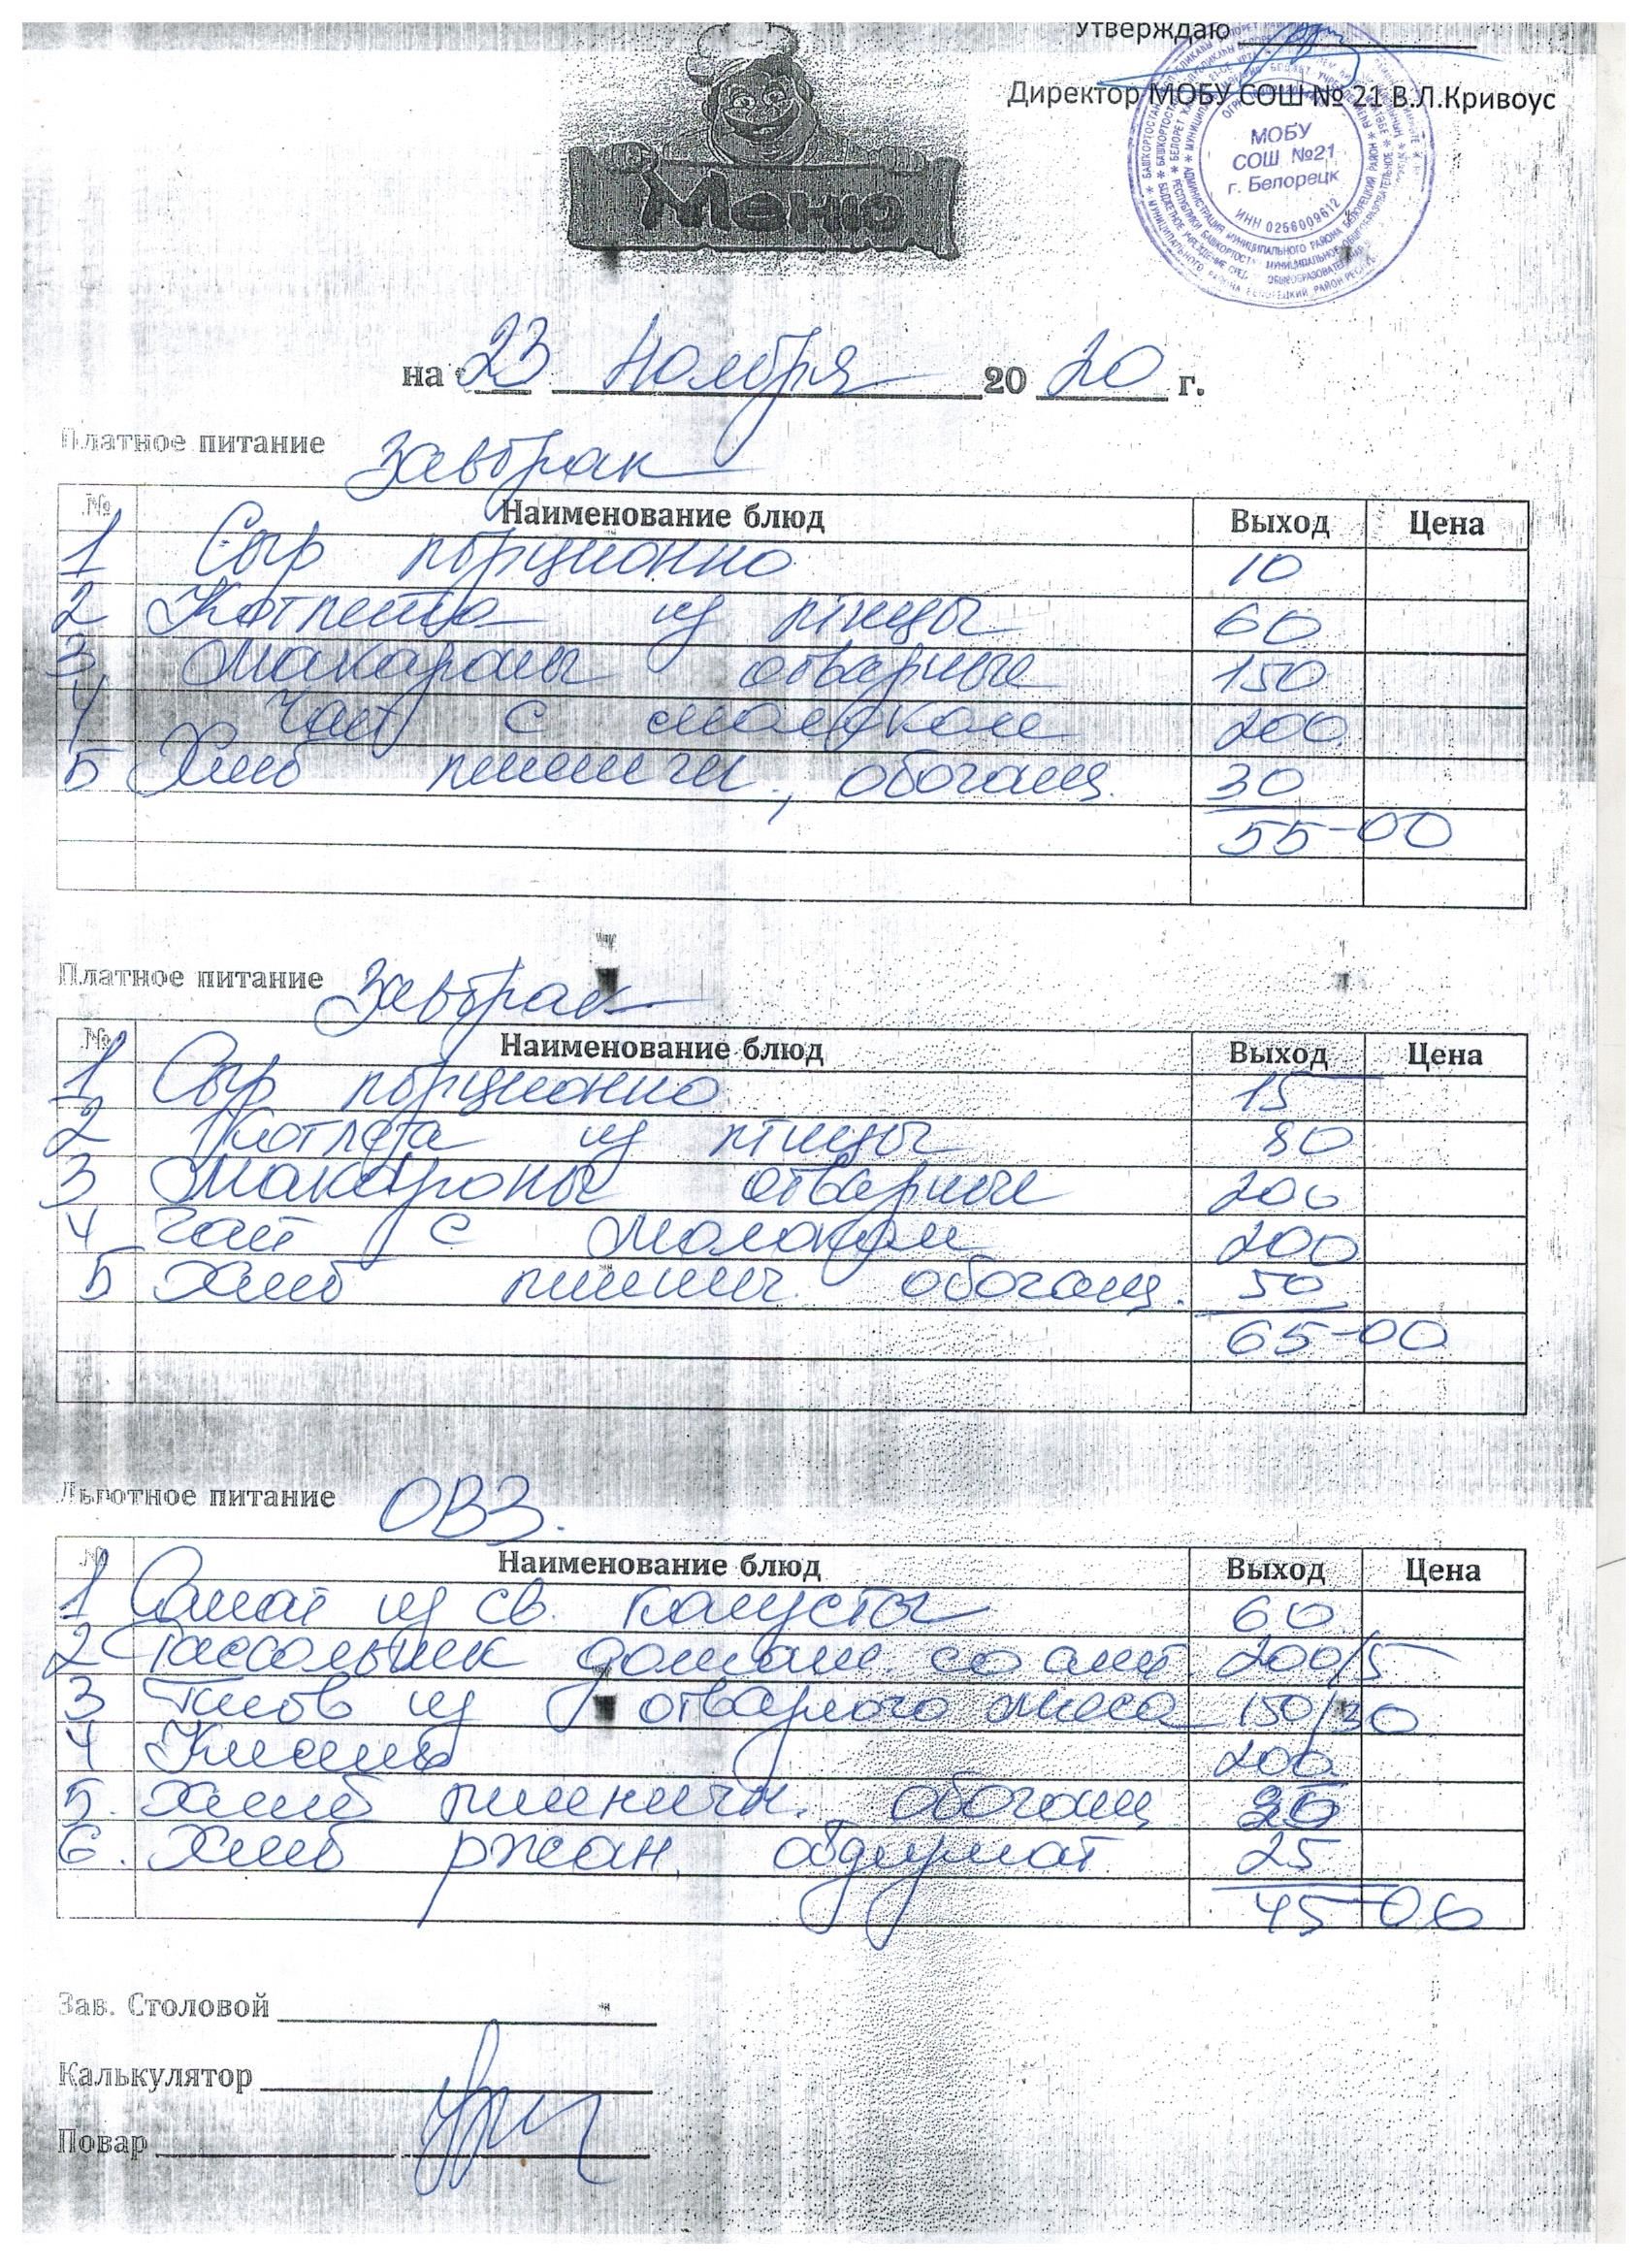 Утверждаю
Директор МОБУ СОШ № 21 В.Л.Кривоус
МОБУ
СОШ №21
г. Белорецк
ИНН 0256009612
Меню
на 23 ноября 2020 г.
Платное питание Завтрак
№ Наименование блюд Выход Цена
1 Сыр порционно 10
2 Котлета из птицы 60
3 Макароны отварные 150
4 Чай с молоком 200
5 Хлеб пшеничн., обогащ. 30
55-00
Платное питание Завтрак
№ Наименование блюд Выход Цена
1 Сыр порционно 15
2 Котлета из птицы 80
3 Макароны отварные 200
4 Чай с молоком 200
5 Хлеб пшенич. обогащ. 50
65-00
Льготное питание ОВЗ.
№ Наименование блюд Выход Цена
1 Салат из св. капусты 60
2 Рассольник домаш. со смет. 200/5
3 Плов из отварного мяса 150/30
4 Кисель 200
5. Хлеб пшеничн. обогащ 20
6. Хлеб ржан. обдирной 25
45-06
Зав. Столовой
Калькулятор
Повар